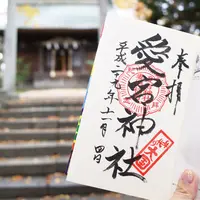 奉拝
愛宕神社
平成二十七年十一月四日